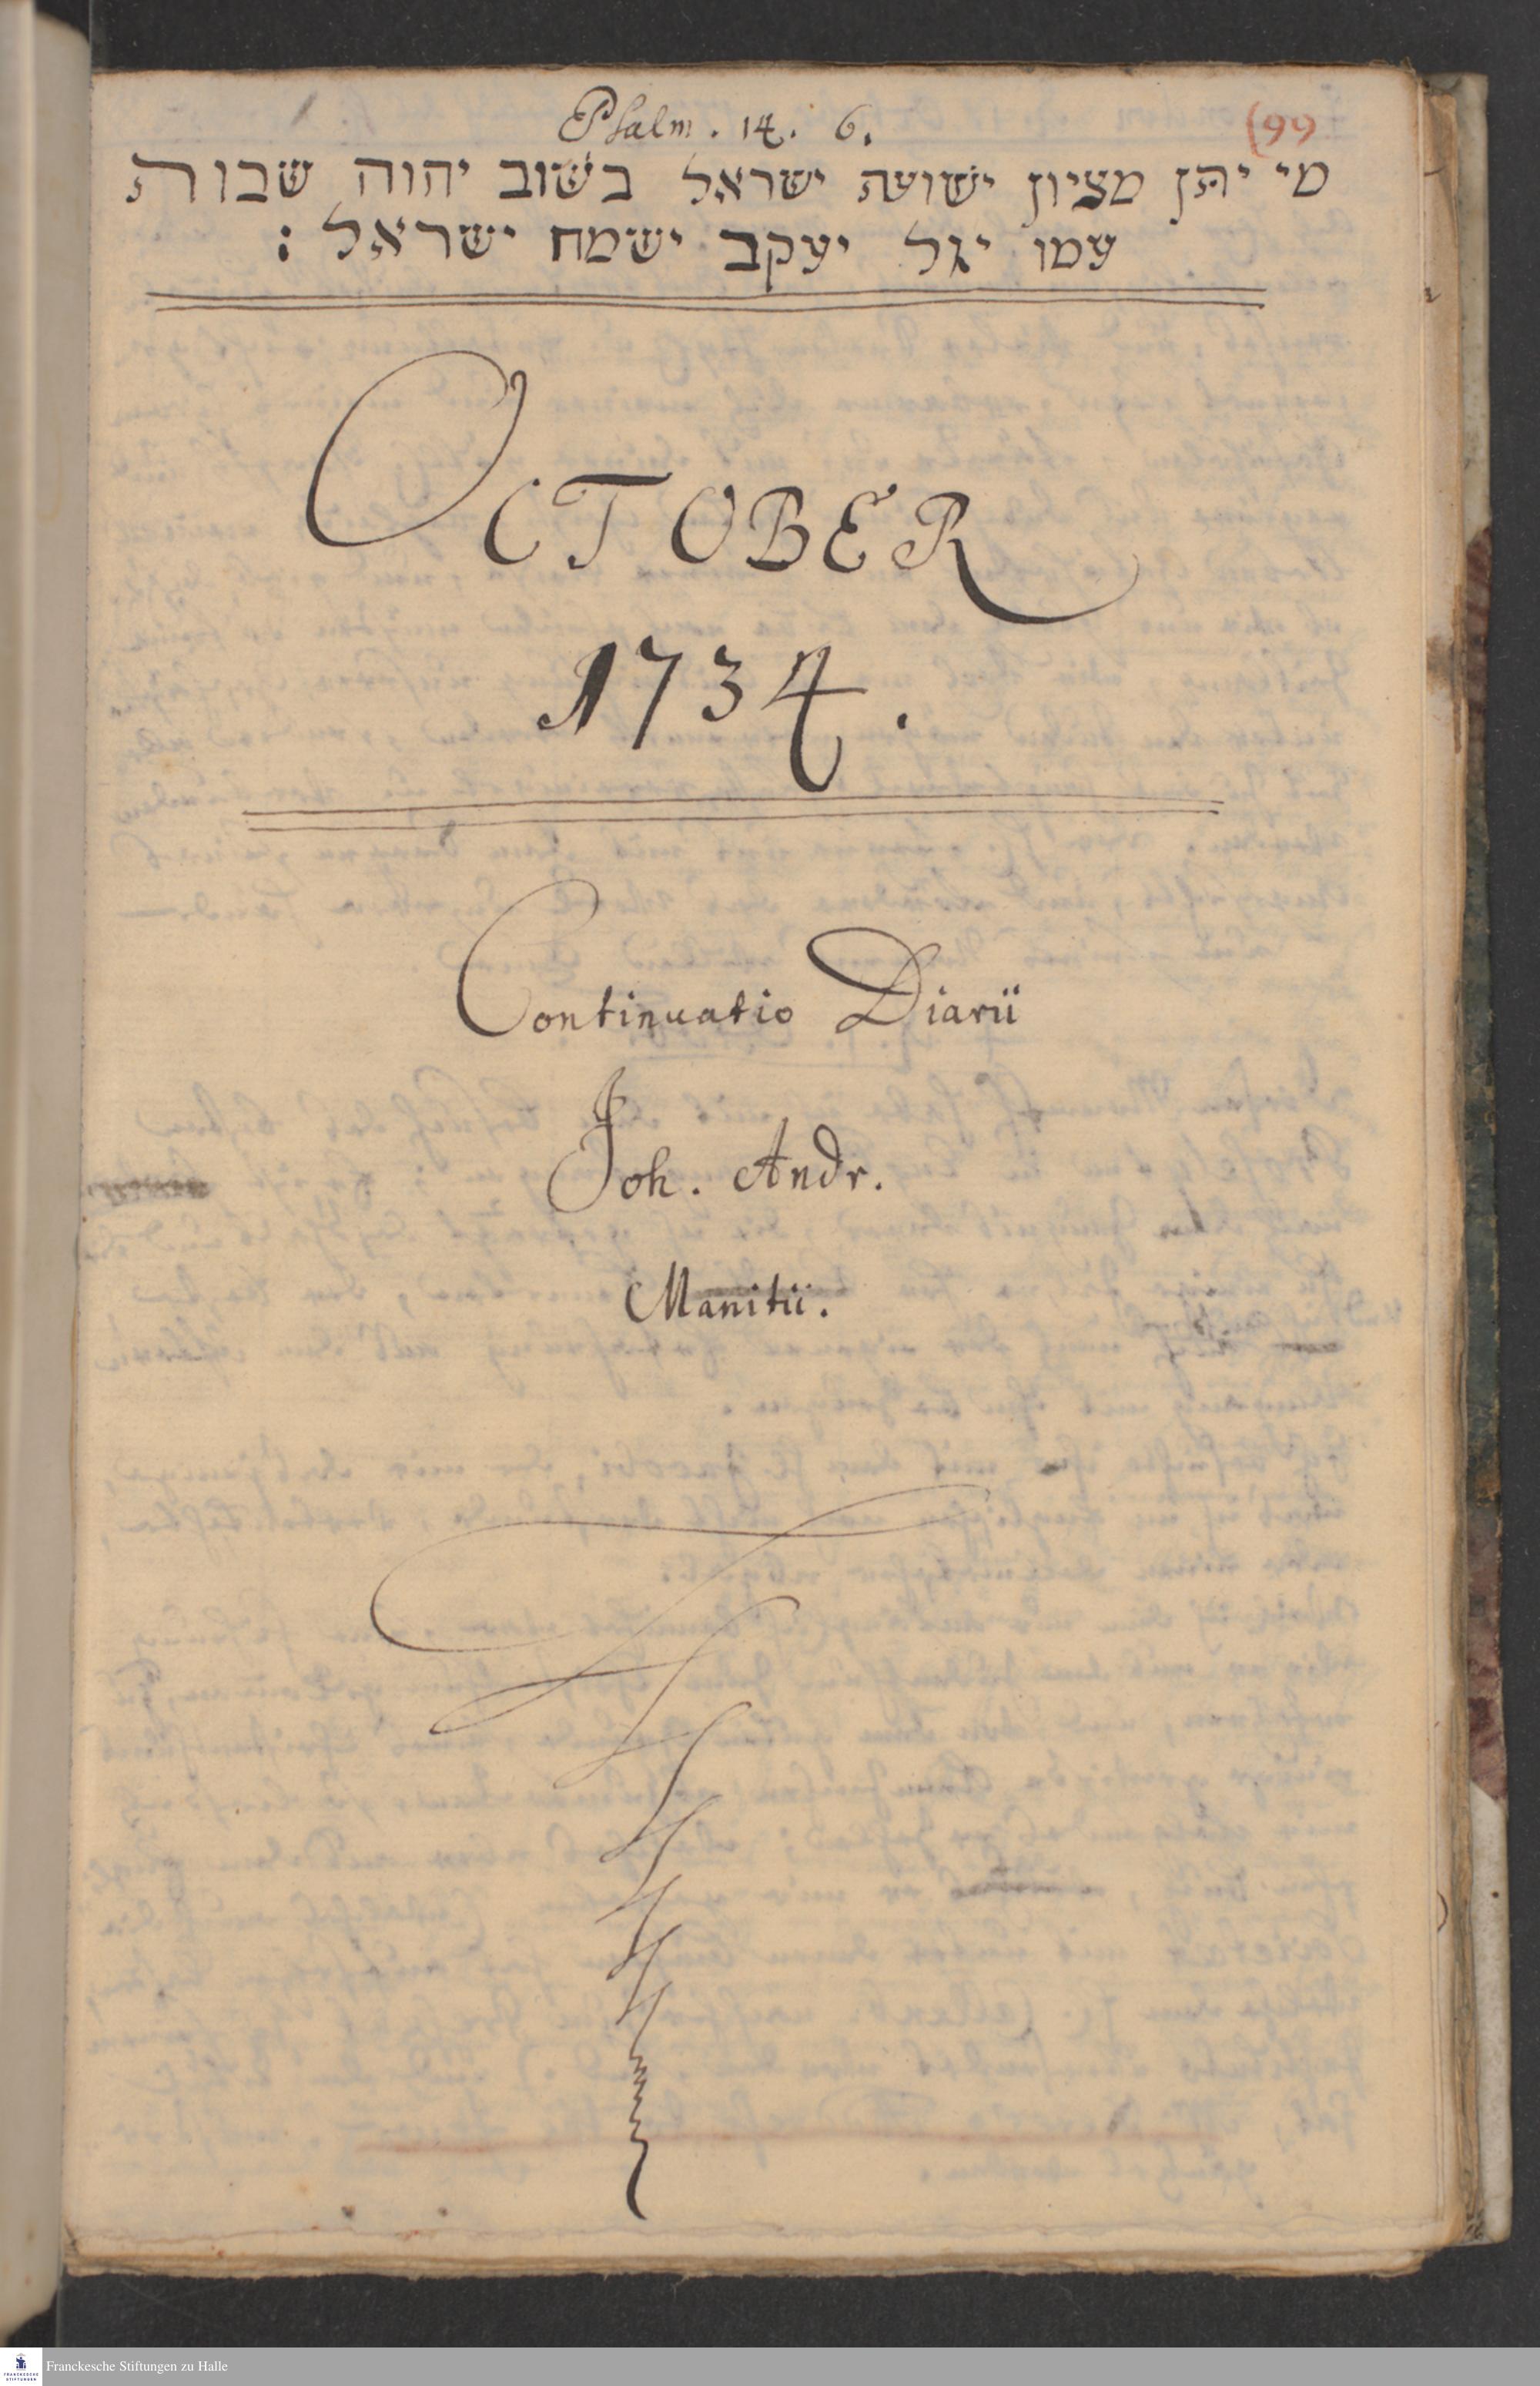 Psalm. 14. 6.
(99
מי יתן מציון ישועת ישראל בשוב יהוה שבות
עמו יגל יעקב ישמח ישראל :
OCTOBER
1734.
Continuatio Diarii
Joh. Andr.
Manitii.
Franckesche Stiftungen zu Halle
FRANCKESCHE
STIFTUNGEN